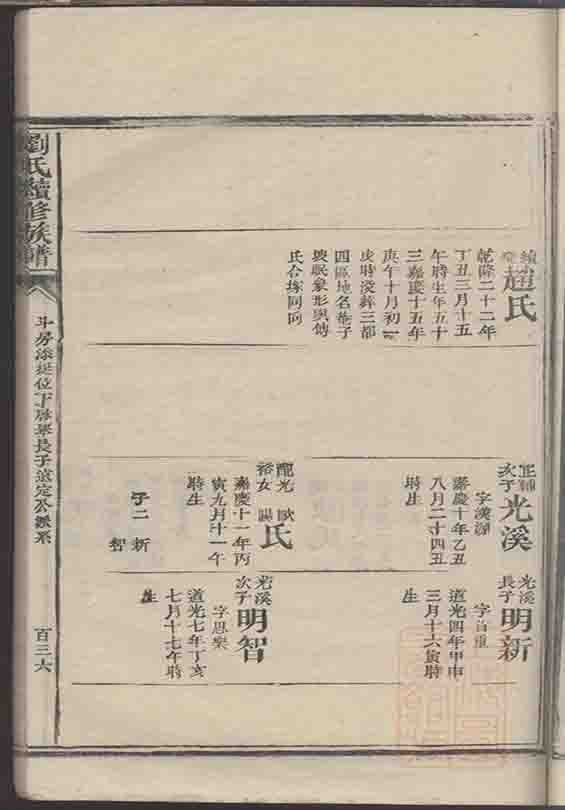 氏
乾隆二十二年
丁丑三月十五
午時生年五十
三嘉慶十五年
庚午十月初二
戌時沒葬三都
四區地名菴子
坡眠象形與傳
氏合塚同向
次子光溪
字漢源
嘉慶十年乙丑
八月二十四丑
時生
配光歐陽
裕女氏
嘉慶十一年丙
寅九月十一午
時生
子二新
智
光溪長子明新
道光四年甲申
三月十六寅時
生
光溪次子明智
字思樂
道光七年丁亥
七月十七午時
生
劉氏續修族譜
百三六